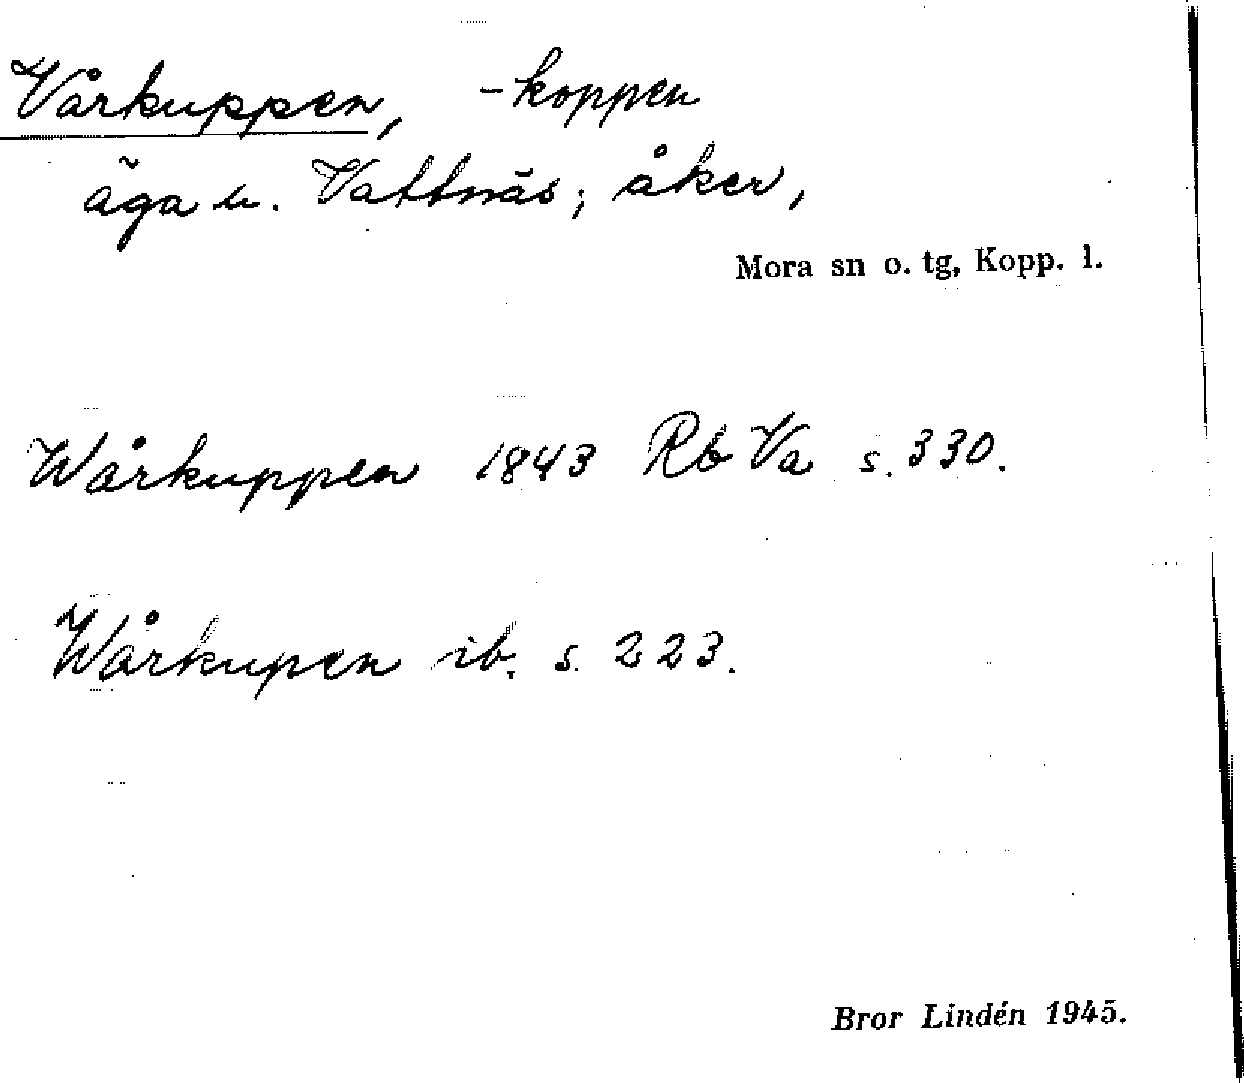 Vårkuppen, -koppen
äga u. Vattnäs; åker,
Mora sn o. tg, Kopp. l.
Wårkuppen 1843 Rb Va s. 330.
Wårkupen ib. s. 223.
Bror Lindén 1945.